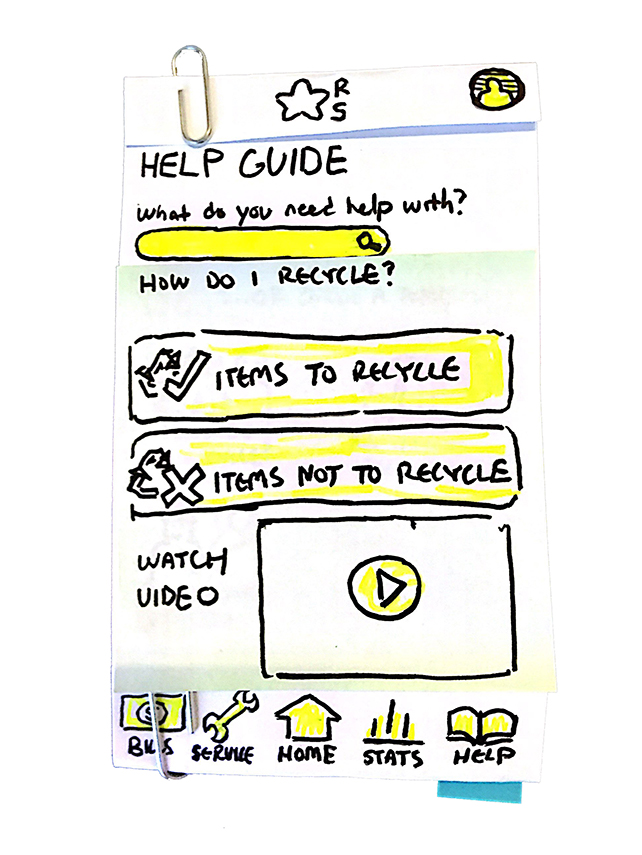 R
S
HELP GUIDE
What do you need help with?
HOW DO I RECYCLE?
ITEMS TO RECYCLE
ITEMS NOT TO RECYCLE
WATCH
VIDEO
BILLS SERVICE HOME STATS HELP